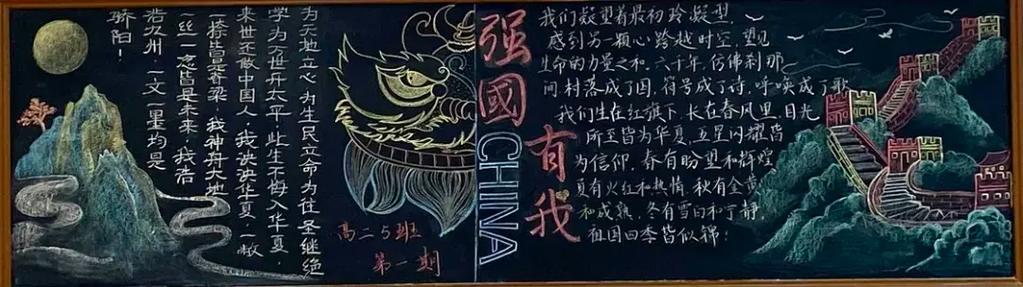 为天地立心为生民立命为往圣继绝
学为万世开太平 此生不悔入华夏,
来世还做中国人,我泱泱华夏,一撇
一捺皆是脊梁 我神舟大地
一丝一念皆具未来,我浩
浩九州,一文一墨均是
骄阳!
高二5班
第一期
强國有我
CHINA
我们凝望着最初的凝望,
感到另一颗心跨越时空,望见
生命的力量之和。六十年,仿佛刹那
间村落成了国,符号成了诗,呼唤成了歌
我们生在红旗下,长在春风里,目光
所至皆为华夏,五星闪耀皆
为信仰。春有盼望和辉煌
夏有火红和热情,秋有金黄
和成熟,冬有雪白和宁静,
祖国四季皆似锦!